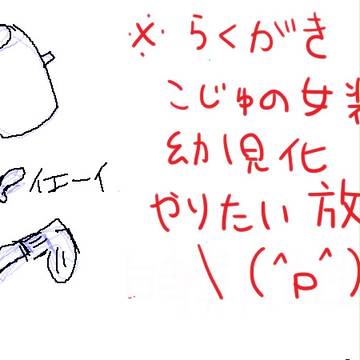 ※らくがき
こじゅの女装
幼児化
やりたい放
\(^p^)
イエーイ